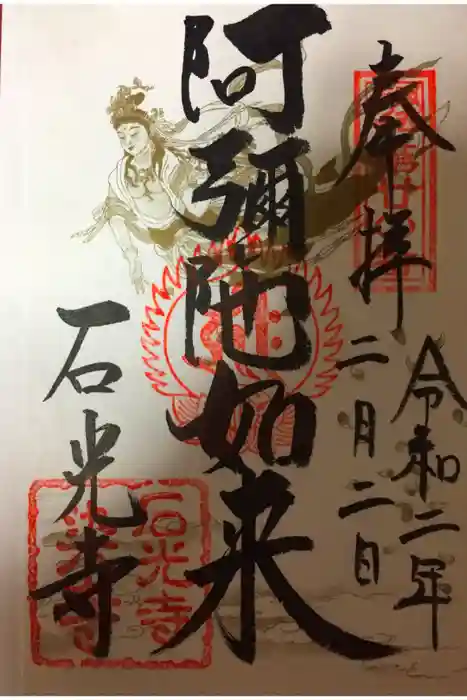 奉拝
令和二年
二月二日
阿彌陁如来
石光寺
石光寺